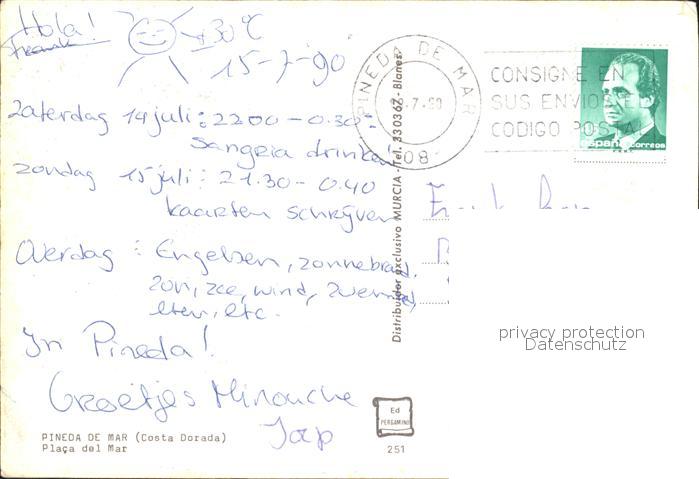 Hola!
+30°C
15-7-90
Zaterdag 14 juli: 22.00 - 0.30:
Sangria drinken
zondag 15 juli: 21.30 - 0.40
kaarten schrijven
Overdag: Engelsen, zonnebrand,
zon, zee, wind, zwemmen,
eten, etc.
In Pineda!
Groetjes Minouche
Jaap
PINEDA DE MAR (Costa Dorada)
Plaça del Mar
Ed
PERGAMINO
251
Distribuidor exclusivo MURCIA - Tel. 330362 - Blanes
PINEDA DE MAR
.7.90
08
CONSIGNE EN
SUS ENVIOS E
CODIGO POSTA
españa correos
privacy protection
Datenschutz